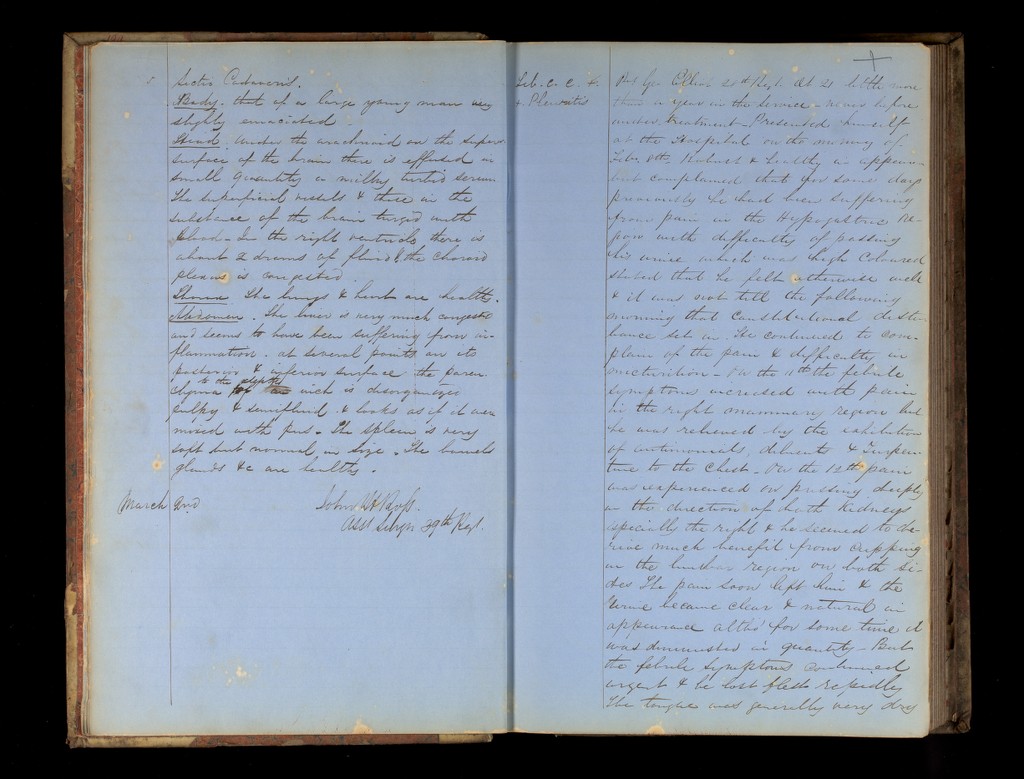 Sectio Cadaveris.
Body. that of a large young man very
slightly emaciated.
Head. Under the arachnoid on the super.
surface of the brain there is effused in
small quantity a milky turbid serum
The superficial vessels & those in the
substance of the brain turgid with
blood - In the right ventricle there is
about 2 drams of fluid & the choroid
plexus is congested.
Thorax The lungs & heart are healthy.
Abdomen. The liver is very much congested
and seems to have been suffering from in-
flammation. at several points on its
posterior & inferior surface the paren
chyma to the depth of an inch is disorganized
pulpy & semifluid & looks as if it were
mixed with pus. The spleen is very
soft but normal in size. The bowels
glands &c are healthy.
March 2nd
John
Asst Surgn 29th Regt.
Feb. c. c. &
& Pleuritis
Pvt Geo. Elliot 29th Regt. Æt. 21 little more
than a year in the service - never before
under treatment - Presented himself
at the Hospital on the morning of
Feby 8th. Robust & healthy in appearance
but complained that for some days
previously he had been suffering
from pain in the Hypogastric Re-
gion with difficulty of passing
his urine which was high coloured
stated that he felt otherwise well
& it was not till the following
morning that constitutional distur-
bance set in. He continued to com-
plain of the pain & difficulty in
micturition - On the 11th the febrile
symptoms increased with pain
in the right mammary region but
he was relieved by the exhibition
of antimonials, diluents & Turpen-
tine to the chest - On the 12th pain
was experienced on pressing deeply
in the direction of both Kidneys
especially the right & he seemed to de-
rive much benefit from cupping
in the lumbar region on both si-
des The pain soon left him & the
Urine became clear & natural in
appearance altho' for some time it
was diminished in quantity - But
the febrile symptoms continued
urgent & he lost flesh rapidly
The tongue was generally very dry